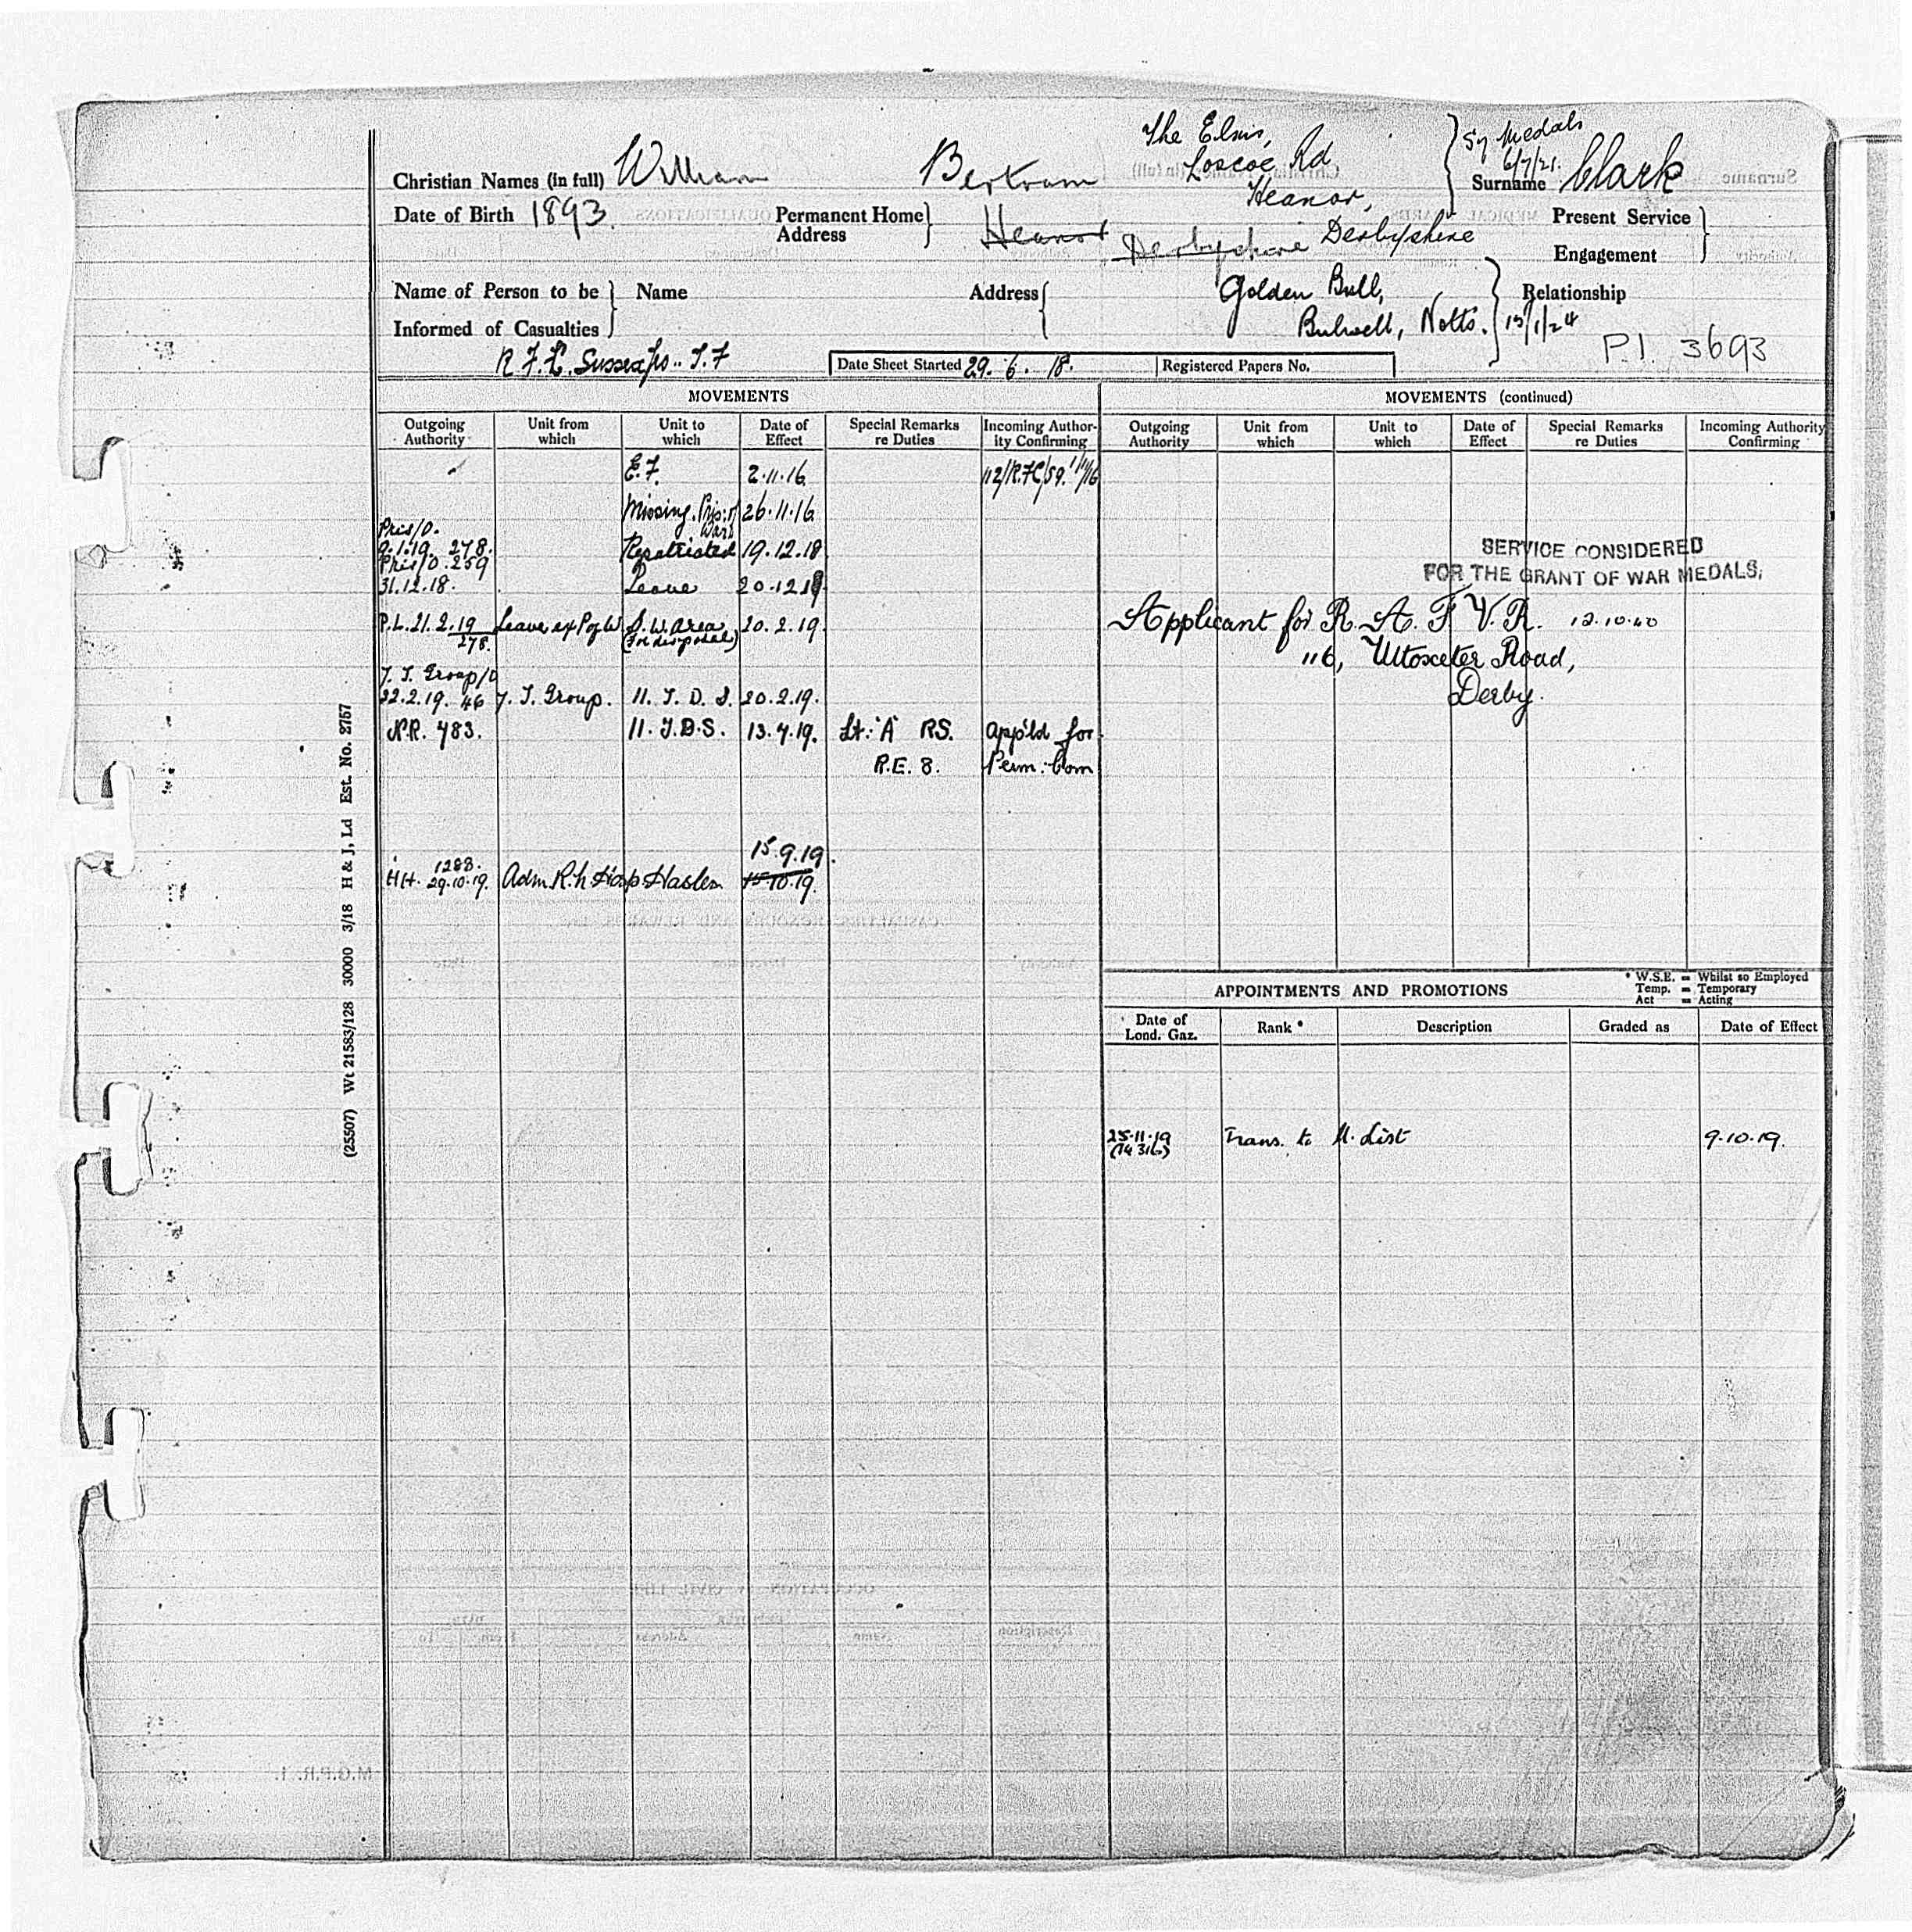 The Elms,
Loscoe Rd,
Heanor,
Derbyshire
Sy Medals
6/7/21.
Christian Names (in full) William Bertram
Surname Clark
Date of Birth 1893.
Permanent Home Address
Heanor Derbyshire
Present Service
Engagement
Name of Person to be
Informed of Casualties
Name
Address
Golden Bull,
Bulwell, Notts.
Relationship
15/1/24
P.I. 3693
T.F
Date Sheet Started 29.6.18.
Registered Papers No.
MOVEMENTS
Outgoing Authority
Unit from which
Unit to which
Date of Effect
Special Remarks re Duties
Incoming Author-ity Confirming
E.F. 2.11.16. 112/RFC/59.
Missing. Pris: of War 26.11.16.
Pris/O.
9.1.19. 278. Repatriated 19.12.18
Pris/O. 259
31.12.18. Leave 20.12.18
P.L. 21.2.19 Leave ex P of W S.W. Area 20.2.19.
278. (for disposal)
22.2.19. 46 Group. 11. T.D.S. 20.2.19.
N.R. 483. 11. T.D.S. 13.4.19. Lt: "A" RS. App'ld for
R.E. 8. Perm: Com
1288. 15.9.19.
29.10.19. Adm. R.N. Hosp. Haslar 15.10.19.
MOVEMENTS (continued)
Outgoing Authority
Unit from which
Unit to which
Date of Effect
Special Remarks re Duties
Incoming Authority Confirming
SERVICE CONSIDERED
FOR THE GRANT OF WAR MEDALS.
Applicant for R. A. F. V. R. 12.10.40
116, Uttoxeter Road,
Derby.
APPOINTMENTS AND PROMOTIONS
* W.S.E. = Whilst so Employed
Temp. = Temporary
Act = Acting
Date of Lond. Gaz.
Rank *
Description
Graded as
Date of Effect
25.11.19 Trans. to U. List 9.10.19.
(14316)
(25507) Wt 21583/128 30000 3/18 H & J, Ld Est. No. 2757
M.G.P.R. 1.